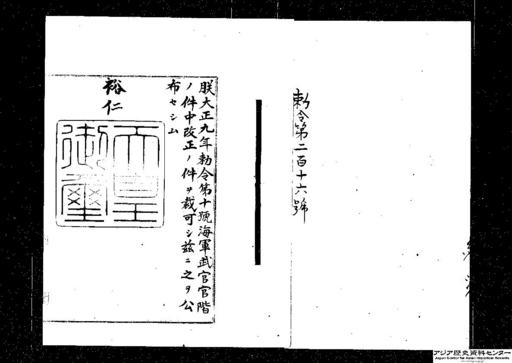 勅令第二百十六號
朕大正九年勅令第十號海軍武官官階
ノ件中改正ノ件ヲ裁可シ茲ニ之ヲ公
布セシム
裕仁
天皇
御璽
アジア歴史資料センター
Japan Center for Asian Historical Records